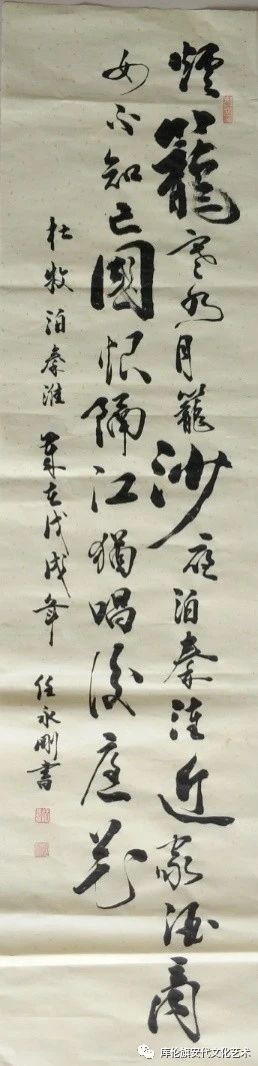 煙籠寒水月籠沙夜泊秦淮近家酒商
女不知亡國恨隔江猶唱後庭花
杜牧泊秦淮 歲在戊戌年 任永剛書
库伦旗安代文化艺术